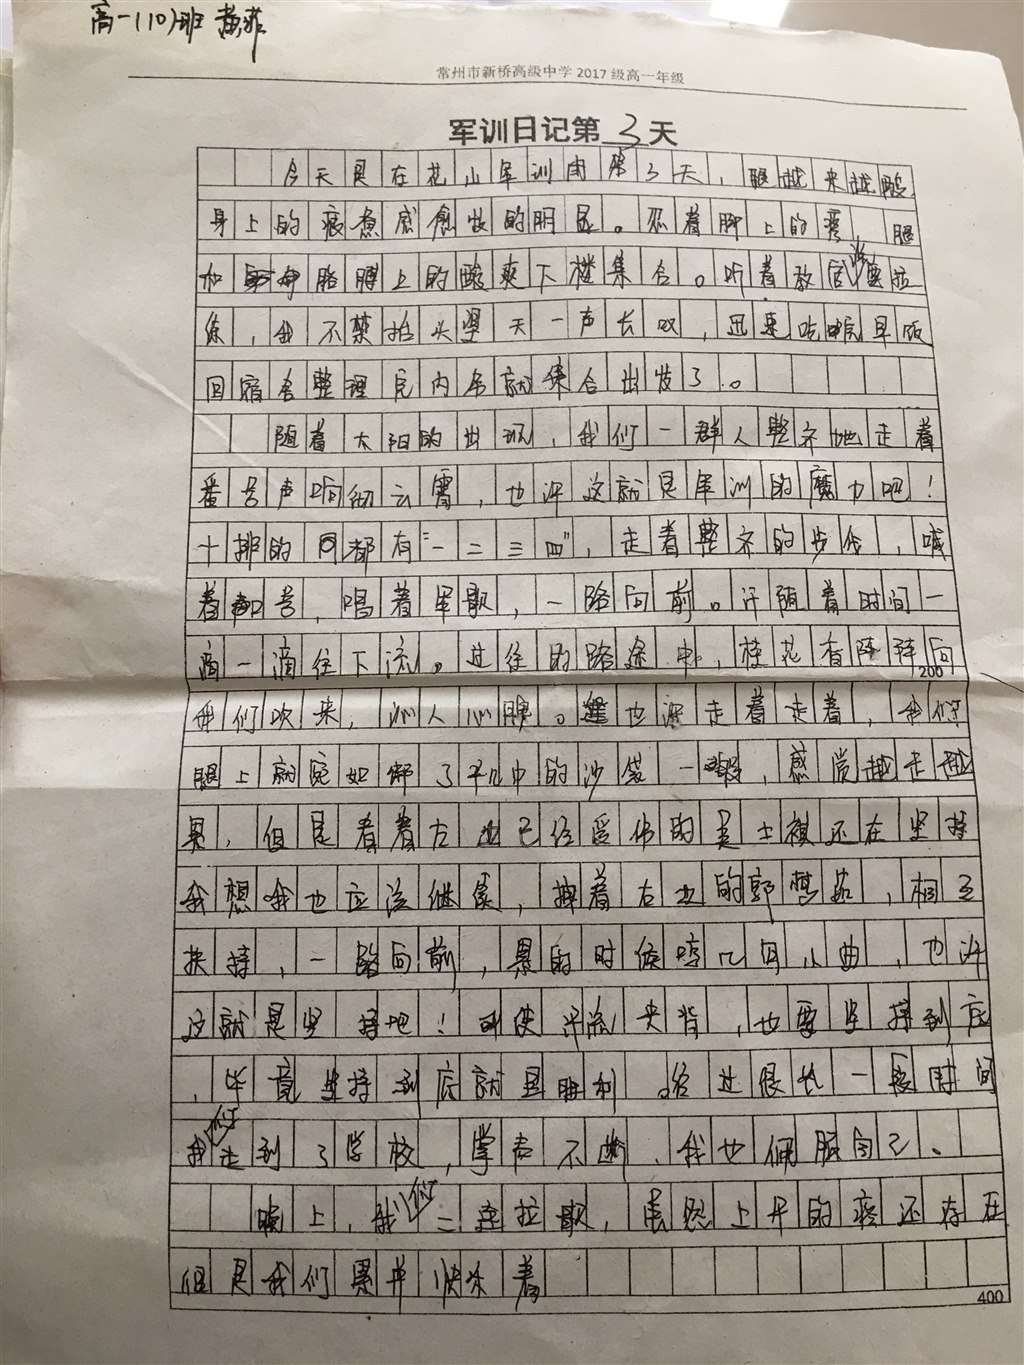 高一(10)班 黄菲
常州市新桥高级中学 2017 级高一年级
军训日记第 3 天
今天是在花山军训的第3天，腿越来越酸，
身上的疲惫感愈发的明显。忍着脚上的疼，腿
和胳膊上的酸爽下楼集合。听着教官说要拉
练，我不禁抬头望天一声长叹，迅速吃完早饭
回宿舍整理完内务就集合出发了。
随着太阳的出现，我们一群人整齐地走着
番号声响彻云霄，也许这就是军训的魔力吧！
十排的口都有"一二三四"，走着整齐的步伐，喊
着口号，唱着军歌，一路向前。汗随着时间一
滴一滴往下流。过往的路途中，桂花香阵阵向
200
我们吹来，沁人心脾。也许走着走着，我们
腿上就宛如绑了几斤的沙袋一般，感觉越走越
累，但是看着左边已经受伤的吴士祺还在坚持
我想我也应该继续，搀着右边的郭梦茹，相互
扶持，一路向前，累的时候哼几句小曲，也许
这就是坚持吧！即使汗流夹背，也要坚持到底
，毕竟坚持到底就是胜利。经过很长一段时间
我们走到了学校，掌声不断，我也佩服自己。
晚上，我们二连拉歌，虽然上午的疼还存在
但是我们累并快乐着
400